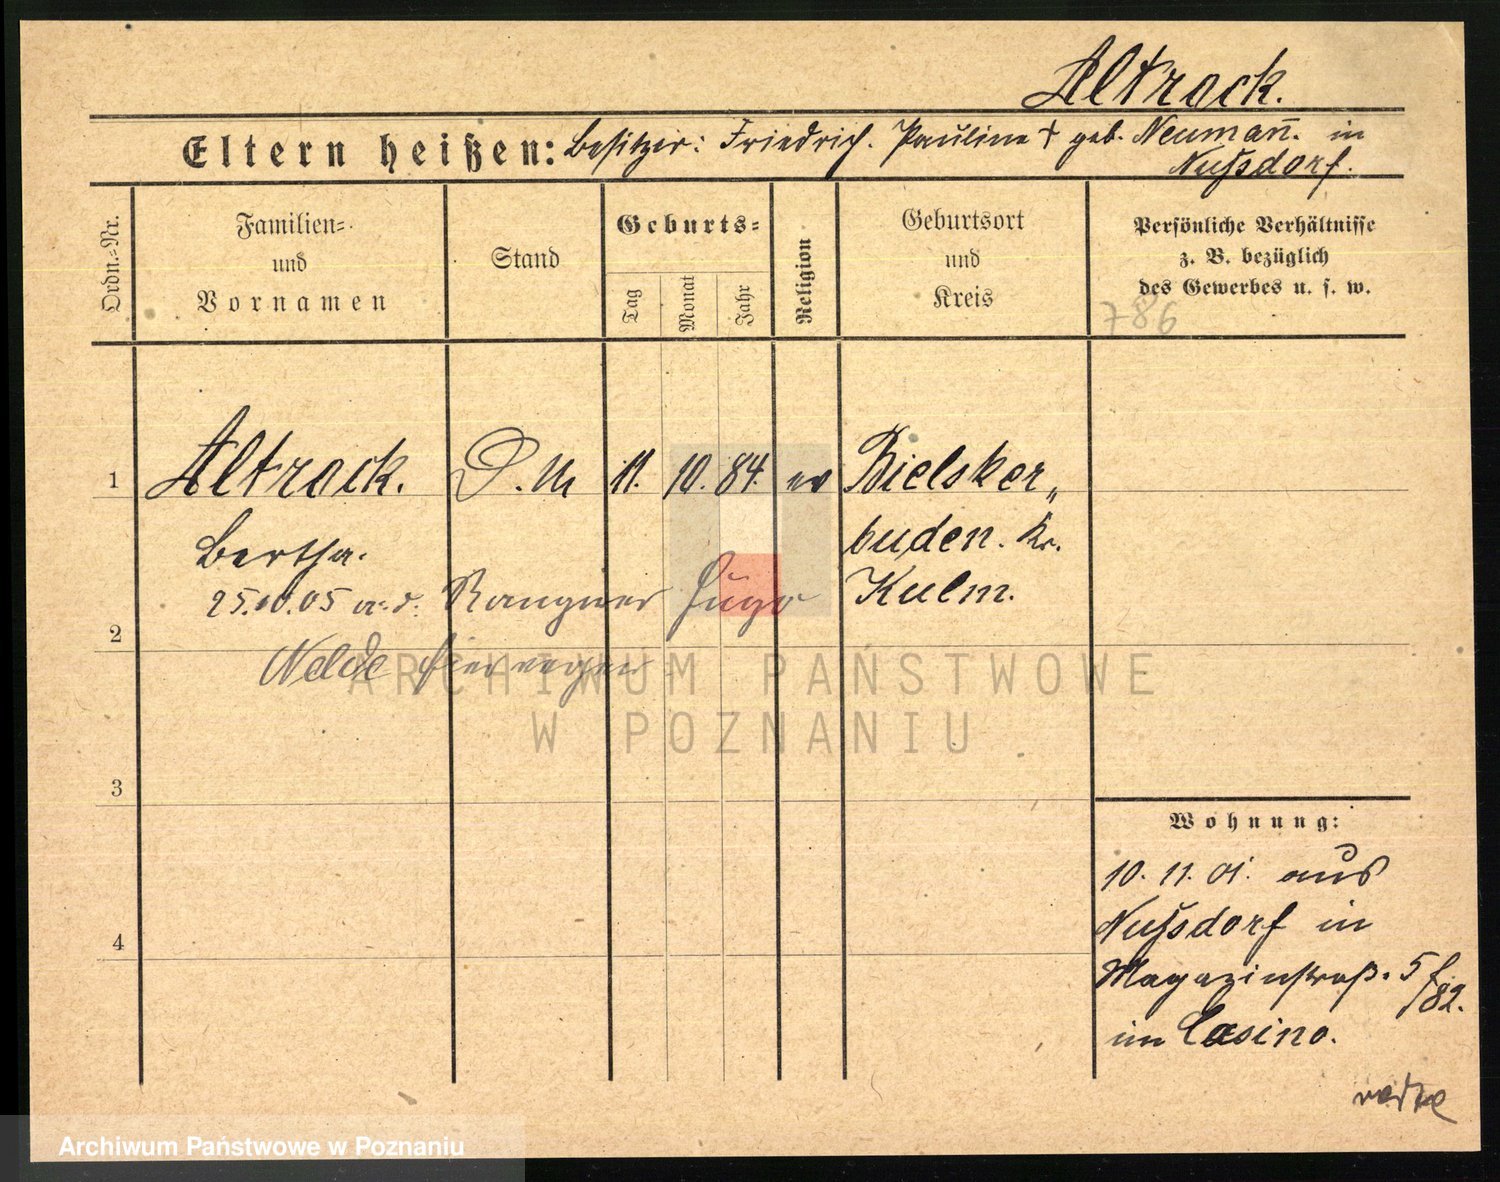 Altrock.
Eltern heißen: Besitzer: Friedrich. Pauline † geb. Neumañ. in
Nußsdorf.
Ordn.=Nr.
Familien=
und
Vornamen
Stand
Geburts=
Tag
Monat
Jahr
Religion
Geburtsort
und
Kreis
Persönliche Verhältnisse
z. B. bezüglich
des Gewerbes u. s. w.
786
1 Altrock. D. M 11. 10. 84. ev Bielsker„
Bertha. buden. Kr.
25.10.05 Hugo Kulm.
2
3
4
Wohnung:
10. 11. 01. aus
Nußsdorf in
Magazinstraß. 5
/82.
im Casino.
ARCHIWUM PAŃSTWOWE
W POZNANIU
Archiwum Państwowe w Poznaniu